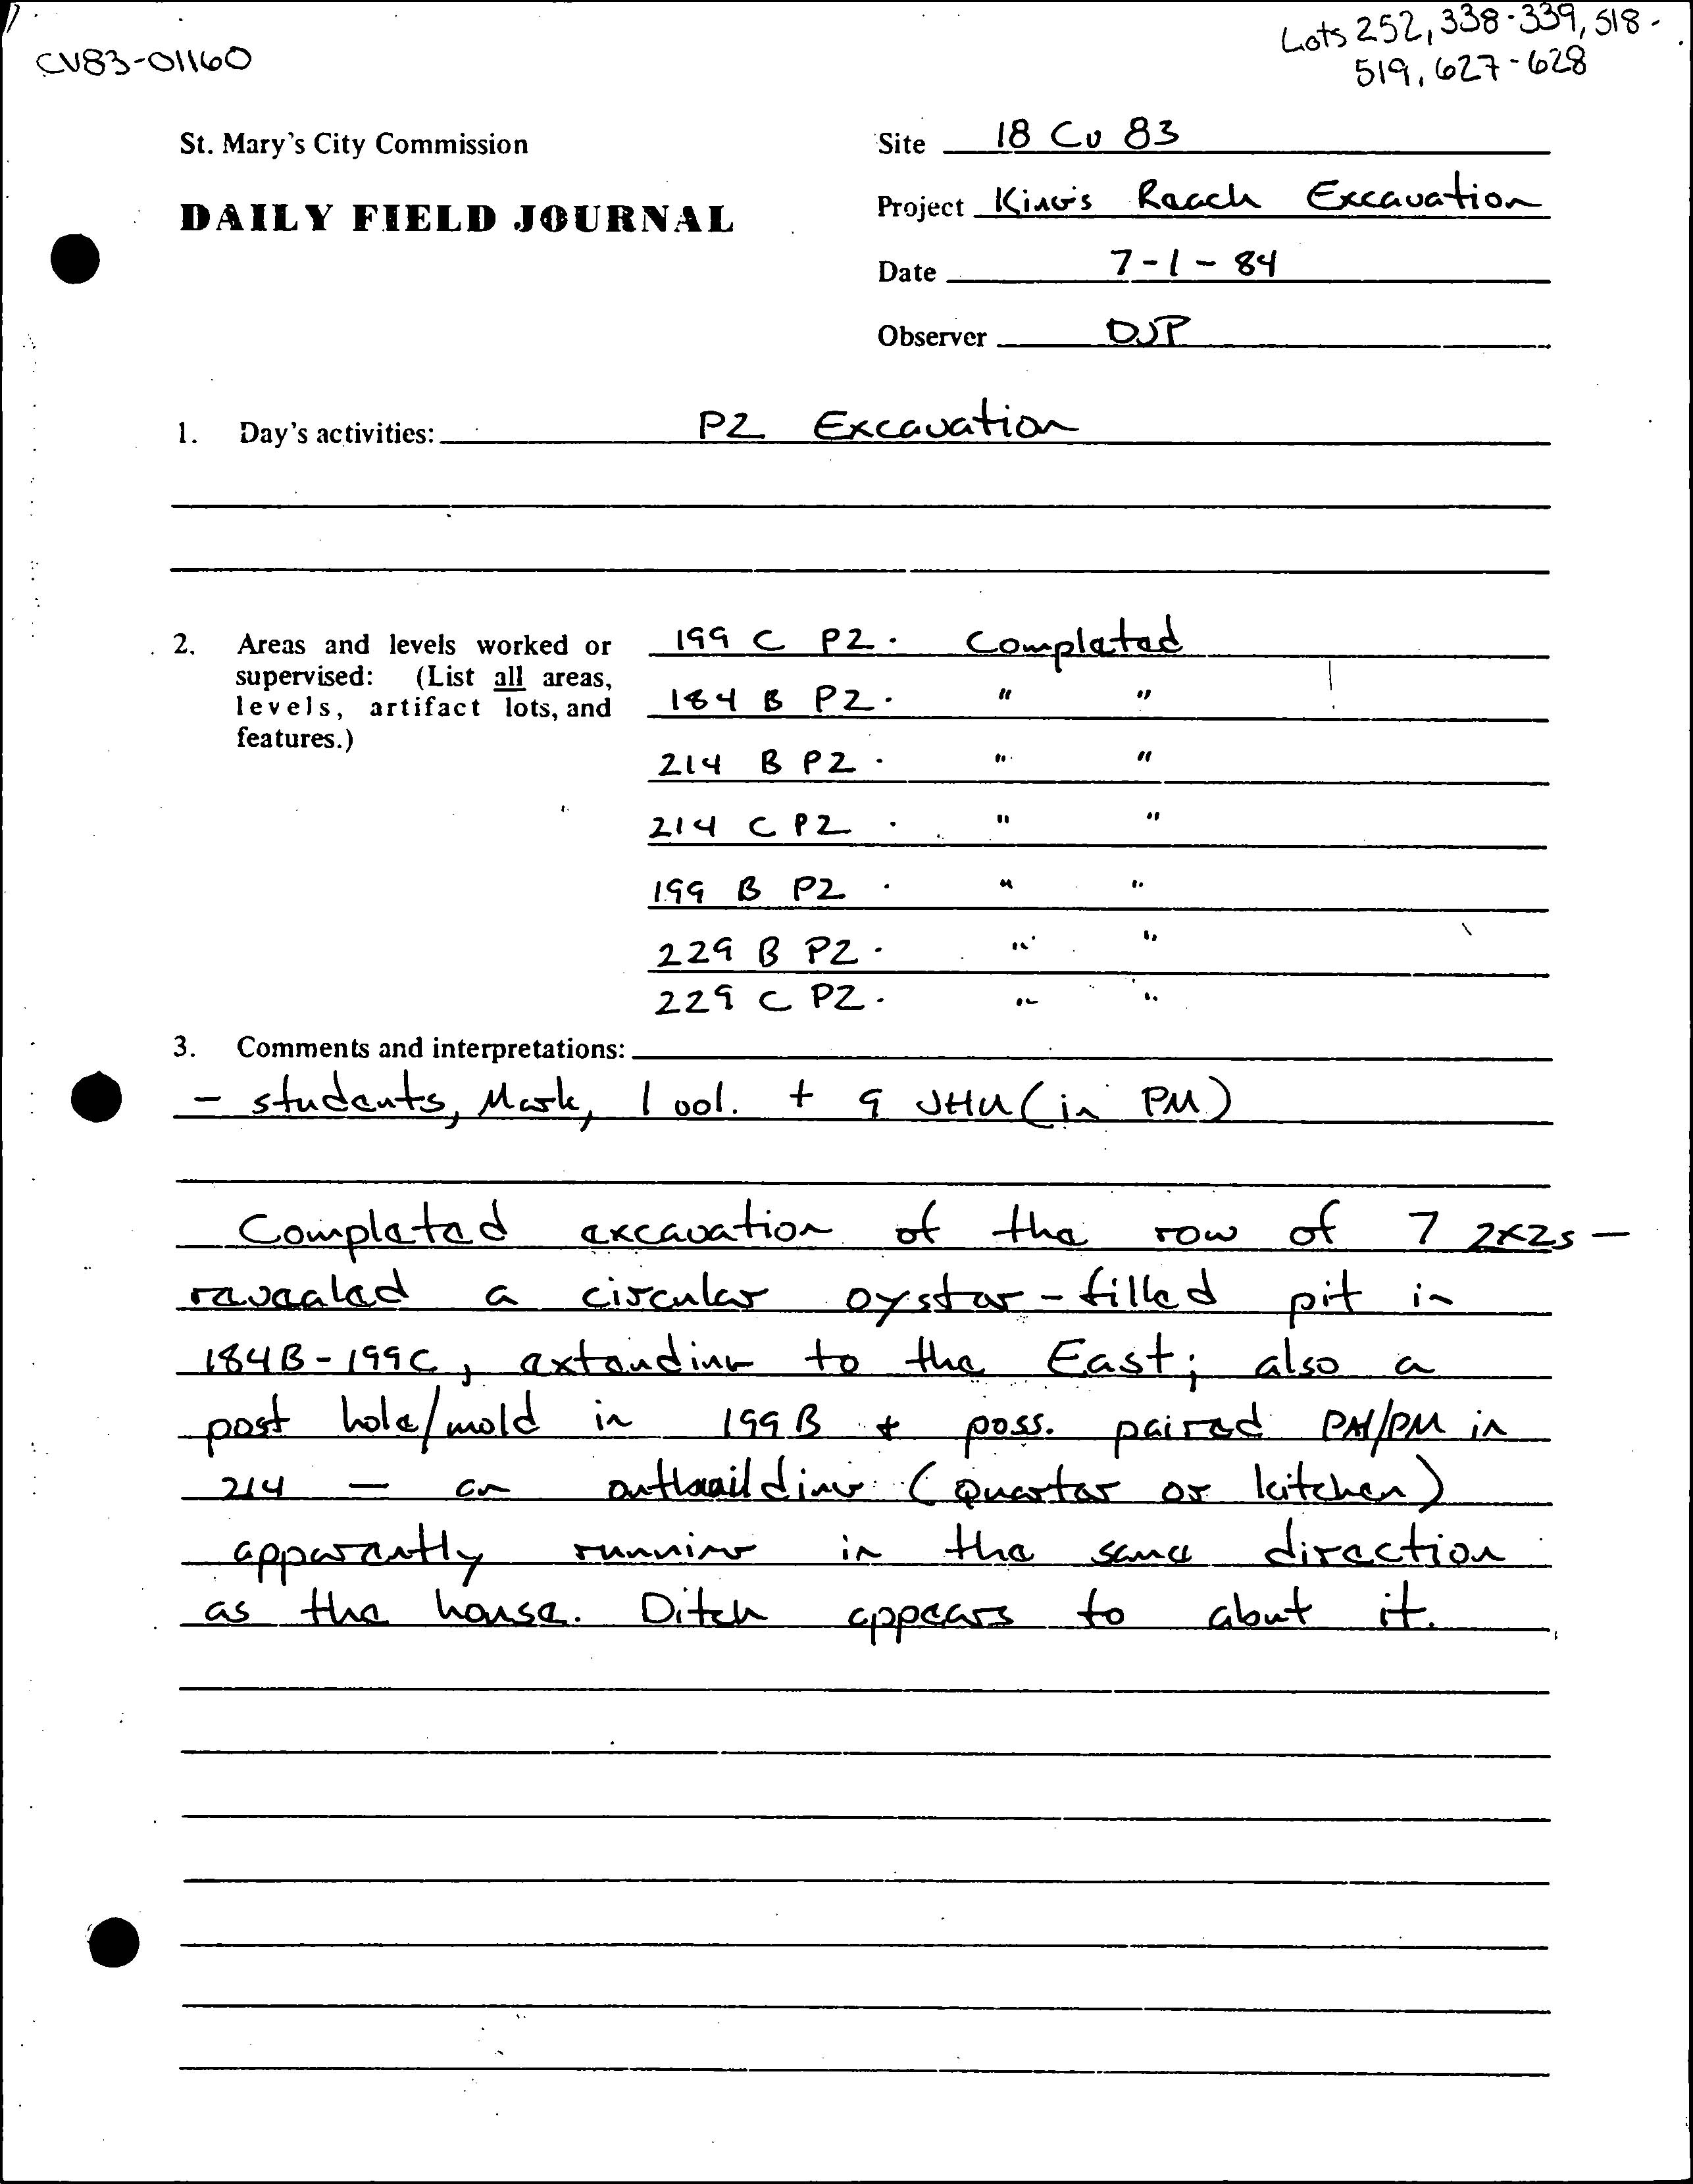 CV83-01160
Lots 252, 338-339, 518-
519, 627-628
St. Mary's City Commission
DAILY FIELD JOURNAL
Site 18 Cv 83
Project King's Reach Excavation
Date 7-1-84
Observer DJP
1. Day's activities: PZ Excavation
2. Areas and levels worked or
supervised: (List all areas,
levels, artifact lots, and
features.)
199 C PZ. Completed
184 B PZ. " "
214 B PZ. " "
214 C PZ. " "
199 B PZ. " "
229 B PZ. " "
229 C PZ. " "
3. Comments and interpretations:
- students, Mark, 1 vol. + 9 JHU (in PM)
Completed excavation of the row of 7 2x2s -
revealed a circular oyster-filled pit in
184B-199C, extending to the East; also a
post hole/mold in 199B + poss. paired PH/PM in
214 - an outbuilding (Quarter or kitchen)
apparently running in the same direction
as the house. Ditch appears to abut it.